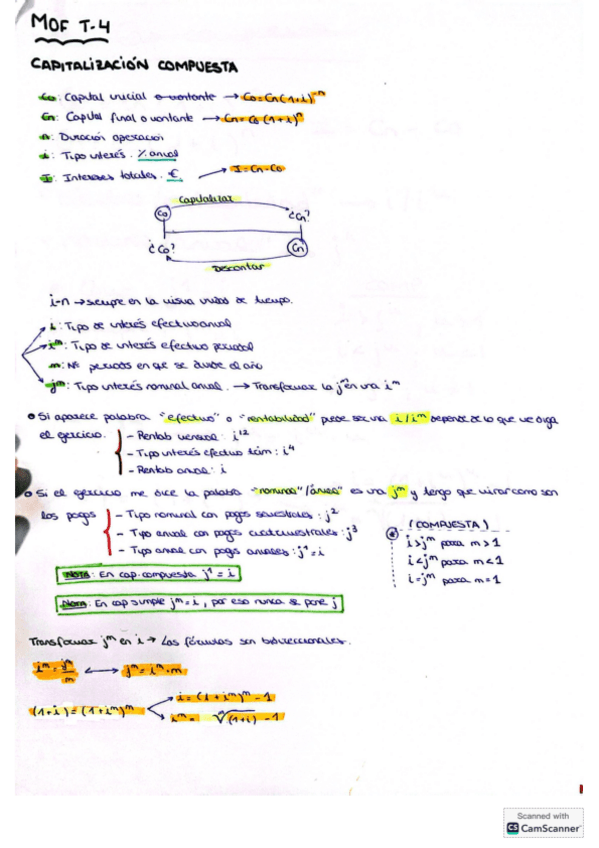 MOF T-4
CAPITALIZACIÓN COMPUESTA
Co: Capital inicial o montante → Co = Cn (1+i)⁻ⁿ
Cn: Capital final o montante → Cn = Co (1+i)ⁿ
n: Duración operación
i: Tipo interés. % anual
I: Intereses totales. € → I = Cn - Co
Capitalizar
Co ¿Cn?
¿Co? Cn
Descontar
i-n → siempre en la misma unidad de tiempo.
i: Tipo de interés efectivo anual
iᵐ: Tipo de interés efectivo periodal
m: Nº periodos en que se divide el año
jᵐ: Tipo interés nominal anual. → Transformar la jᵐ en una iᵐ
Si aparece palabra "efectivo" o "rentabilidad" puede ser una i / iᵐ depende de lo que me diga
el ejercicio. - Rentab mensual: i¹²
- Tipo interés efectivo trim: i⁴
- Rentab anual: i
Si el ejercicio me dice la palabra "nominal"/ánual" es una jᵐ y tengo que mirar como son
los pagos - Tipo nominal con pagos semestrales: j²
- Tipo anual con pagos cuatrimestrales: j³
- Tipo anual con pagos anuales: j¹ = i
(COMPUESTA)
i > jᵐ para m > 1
i < jᵐ para m < 1
i = jᵐ para m = 1
Nota: En cap. compuesta j¹ = i
Nota: En cap simple jᵐ = i, por eso nunca se pone j
Transformar jᵐ en i → Las fórmulas son bidireccionales.
iᵐ = jᵐ/m ⟷ jᵐ = iᵐ · m
(1+i) = (1+iᵐ)ᵐ
i = (1+iᵐ)ᵐ - 1
iᵐ = ᵐ√(1+i) - 1
1
Scanned with
CS CamScanner